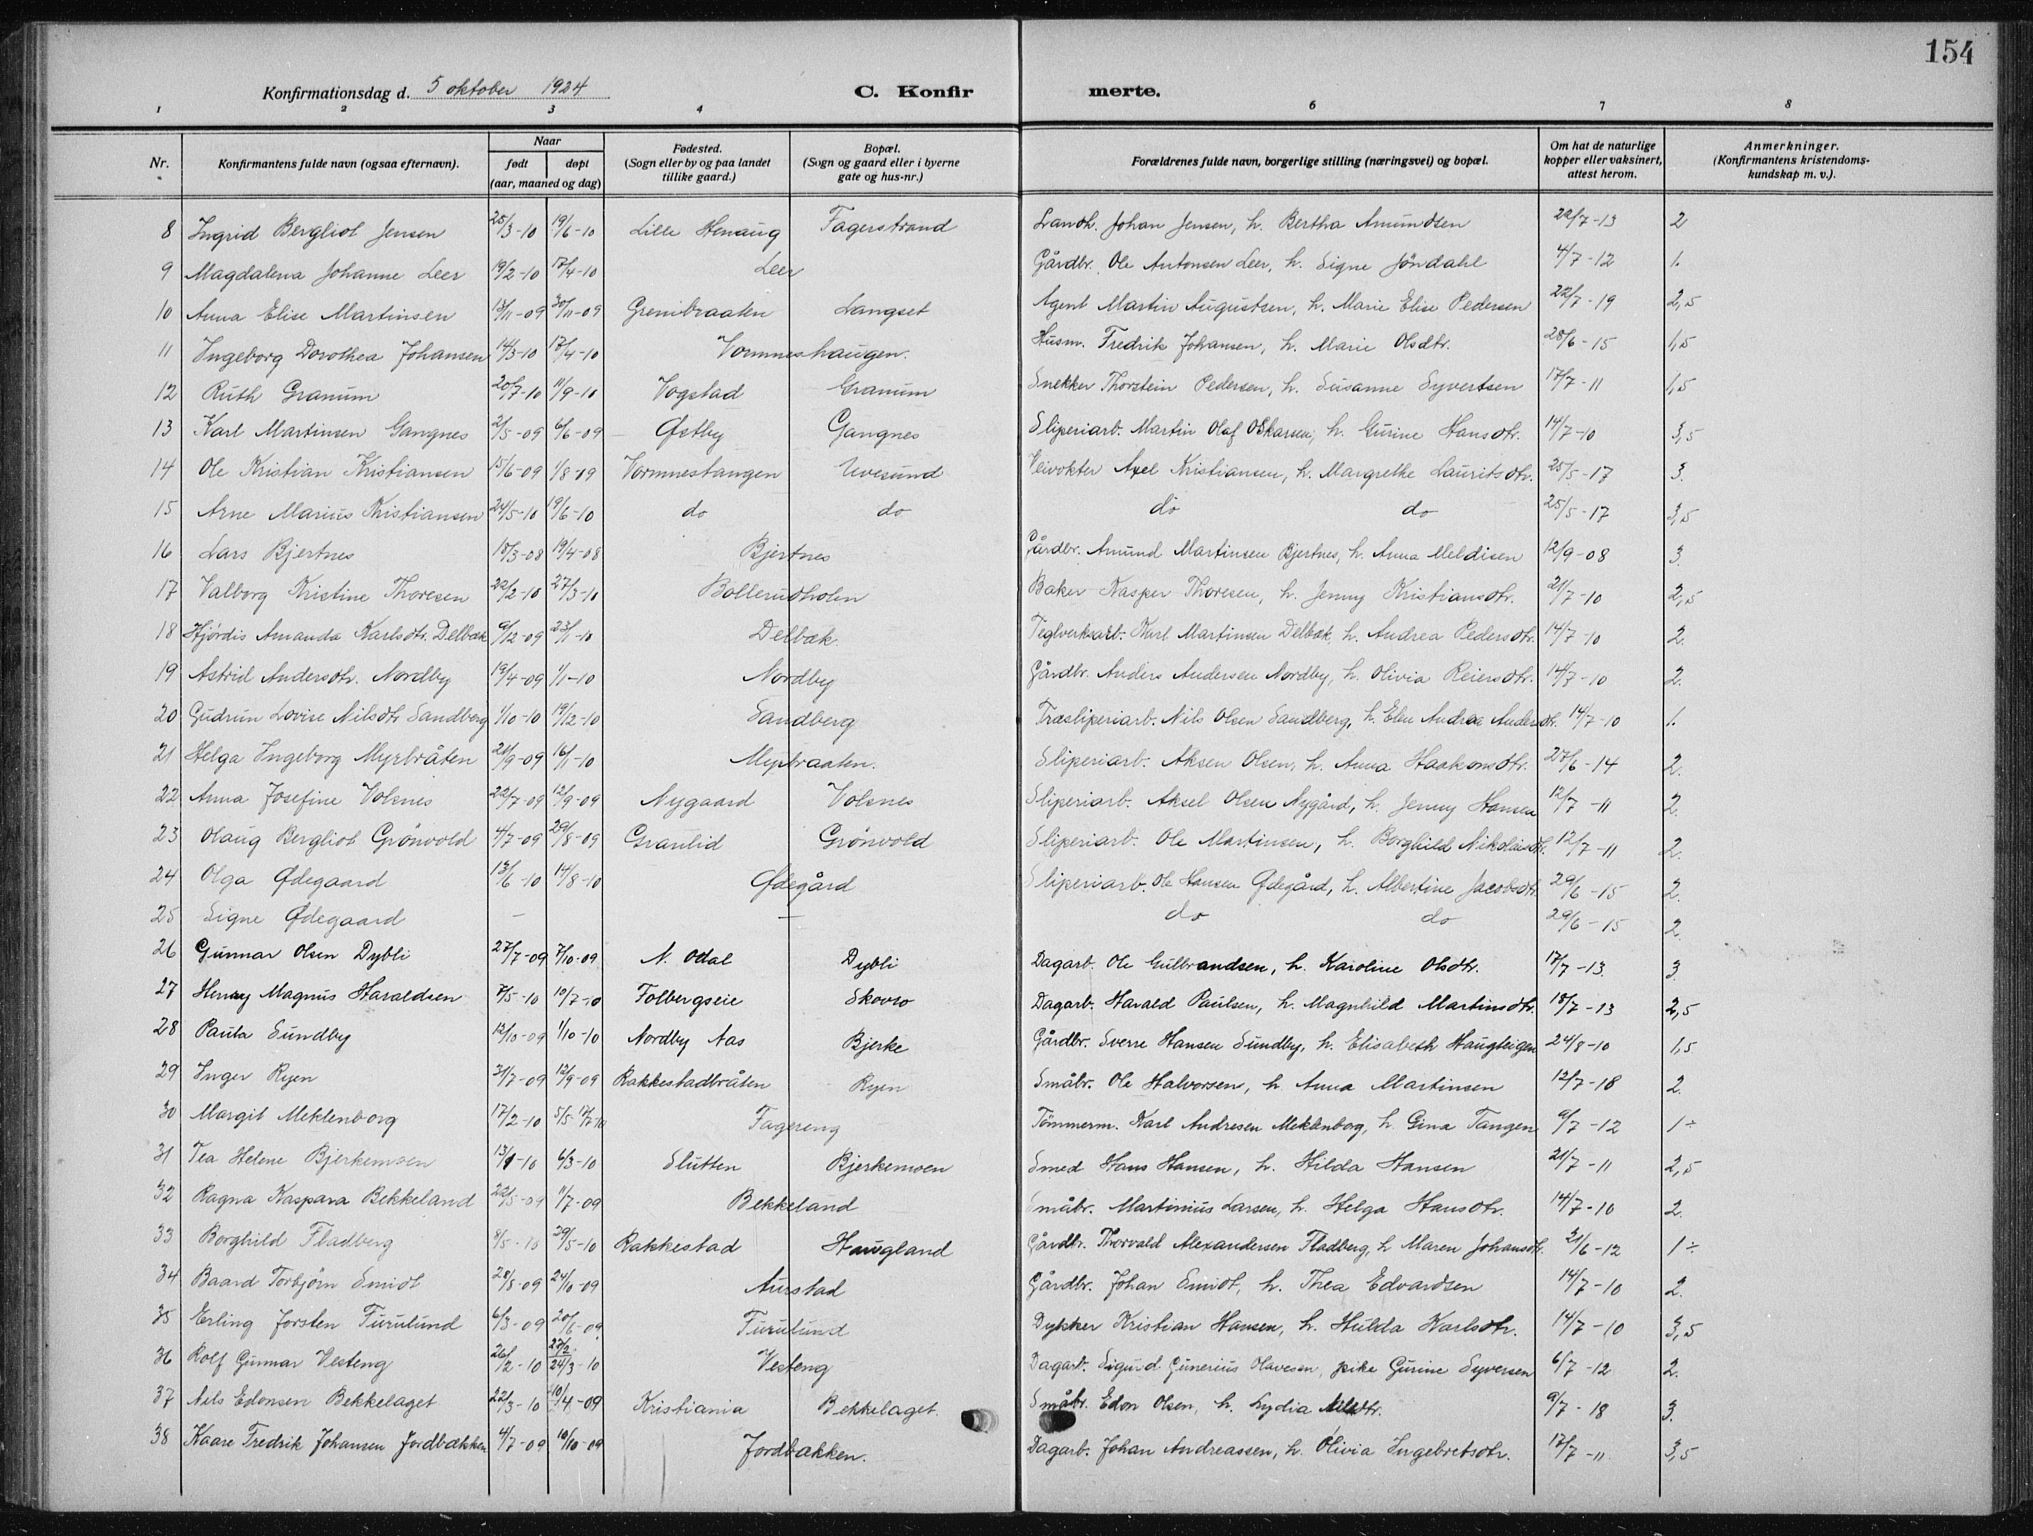 154
Konfirmationsdag d. 5 oktober 1924 C. Konfirmerte.
1 2 3 4 6 7 8
Nr. Konfirmantens fulde navn (ogsaa efternavn). Naar født døpt (aar, maaned og dag) Fødested. (Sogn eller by og paa landet tillike gaard.) Bopæl. (Sogn og gaard eller i byerne gate og hus-nr.) Forældrenes fulde navn, borgerlige stilling (næringsvei) og bopæl. Om hat de naturlige kopper eller vaksinert, attest herom. Anmerkninger. (Konfirmantens kristendomskundskap m. v.).
8 Ingrid Bergliot Jensen 25/3-10 19/6-10 Lille Henaug Fagerstrand Landh. Johan Jensen, h. Bertha Amundsen 22/7-13 2
9 Magdalena Johanne Leer 19/2-10 17/4-10 Leer Gårdbr. Ole Antonsen Leer, h. Signe Jöndahl 4/7-12 1.
10 Anna Elise Martinsen 13/11-09 30/11-09 Grenibraaten Langset Agent Martin Augustsen, h. Marie Elise Pedersen 22/7-19 2,5
11 Ingeborg Dorothea Johansen 14/3-10 17/4-10 Vormneshaugen. Husm. Fredrik Johansen, h. Marie Olsdtr. 28/6-15 1,5
12 Ruth Granum 20/7-10 11/9-10 Vogstad Granum Snekker Thorstein Pedersen, h. Susanne Syvertsen 17/7-11 1,5
13 Karl Martinsen Gangnes 2/5-09 6/6-09 Østby Gangnes Sliperiarb. Martin Olaf Oskarsen, h. Gurine Hansdtr. 14/7-10 3,5
14 Ole Kristian Kristiansen 15/6-09 1/8-09 Vormnestangen Uvesund Veivokter Axel Kristiansen, h. Margrethe Lauritsdtr. 25/5-17 3.
15 Arne Marius Kristiansen 24/5-10 19/6-10 do do do do 25/5-17 3,5
16 Lars Bjertnes 18/3-08 19/4-08 Bjertnes Gårdbr. Amund Martinsen Bjertnes, h. Anna Meldisen 12/9-08 3.
17 Valborg Kristine Thoresen 22/2-10 27/3-10 Bollerudholen Baker Kasper Thoresen, h. Jenny Kristiansdtr. 21/7-10 2,5
18 Hjördis Amanda Karlsdtr. Delbak 9/12-09 23/1-10 Delbak. Teglverksarb. Karl Martinsen Delbak, h. Andrea Pedersdtr. 14/7-10 2.
19 Astrid Andersdtr. Nordby 19/4-09 1/1-10 Nordby Gårdbr. Anders Andersen Nordby, h. Olivia Reiersdtr. 14/7-10 2.
20 Gudrun Lovise Nilsdtr Sandberg 1/10-10 19/12-10 Sandberg Træsliperiarb. Nils Olsen Sandberg, h. Elen Andrea Andersdtr. 14/7-10 1.
21 Helga Ingeborg Myrbråten 21/9-09 16/1-10 Myrbraaten. Sliperiarb. Aksen Olsen, h. Anna Haakonsdtr. 27/6-14 2.
22 Anna Josefine Volsnes 22/7-09 12/9-09 Nygaard Volsnes Sliperiarb. Aksel Olsen Nygård, h. Jenny Hansen 12/7-11 2.
23 Olaug Bergliot Grönvold 4/7-09 29/8-09 Granlid Grönvold Sliperiarb. Ole Martinsen, h. Borghild Nikolaisdtr. 12/7-11 2.
24 Olga Ødegaard 13/6-10 14/8-10 Ødegård Sliperiarb. Ole Hansen Ødegård, h. Albertine Jacobsdtr. 29/6-15 2.
25 Signe Ødegaard — — do do 29/6-15 2
26 Gunnar Olsen Dybli 27/7-09 7/10-09 N. Odal Dybli Dagarb. Ole Gulbrandsen, h. Karoline Olsdtr. 17/7-13 3
27 Henry Magnus Haraldsen 7/5-10 10/7-10 Folbergseie Skovro Dagarb. Harald Paulsen, h. Magnhild Martinsdtr. 18/7-13 2,5
28 Paula Sundby 12/10-09 1/10-10 Nordby Aas Bjerke Gårdbr. Sverre Hansen Sundby, h. Elisabeth Haugteigen 24/8-10 1,5
29 Inger Ryen 31/7-09 12/9-09 Rakkestadbråten Ryen Småbr. Ole Halvorsen, h Anna Martinsen 12/7-18 2.
30 Margit Meklenborg 17/2-10 5/5 Fagereng Tömmerm. Karl Andresen Meklenborg, h. Gina Tangen 9/7-12 1÷
31 Tea Helene Bjerkemoen 13/1-10 6/3-10 Slutten Bjerkemoen Smed Hans Hansen, h. Hilda Hansen 21/7-11 2,5
32 Ragna Kaspara Bekkeland 22/5-09 11/7-09 Bekkeland Småbr. Martinius Larsen, h. Helga Hansdtr. 14/7-10 2.
33 Borghild Fladberg 8/5-10 29/5-10 Rakkestad Haugland Gårdbr. Thorvald Alexandersen Fladberg, h Maren Johansdtr. 21/6-12 1÷
34 Baard Torbjørn Smidt 28/8-09 24/10-09 Aurstad Gårdbr. Johan Smidt, h. Thea Edvardsen 14/7-10 2.
35 Erling Torsten Furulund 6/3-09 20/6-09 Furulund Dykker Kristian Hansen, h. Hulda Karlsdtr. 14/7-10 3,5
36 Rolf Gunnar Vesteng 26/2-10 27/2 24/3-10 Vesteng Dagarb. Sigurd Gunerius Olavesen, pike Gurine Syversen 6/7-12 2.
37 Nils Edonsen Bekkelaget 22/3-10 10/4-09 Kristiania Bekkelaget. Småbr. Edon Olsen, h. Lydia Nilsdtr. 9/7-18 3.
38 Kaare Fredrik Johansen Jordbækken 4/7-09 10/10-09 Jordbækken. Dagarb. Johan Andreassen, h. Olivia Ingebretsdtr. 17/7-11 3,5